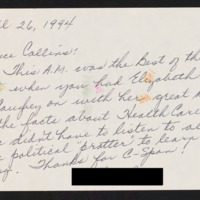 il 26, 1994
ce Collins:
This A.M. was the Best of th
when you had Elizabeth
Caughey on with her great A
the facts about Health Care
e didn't have to listen to al
e political "pratter" to learn
Thanks for C-Span!